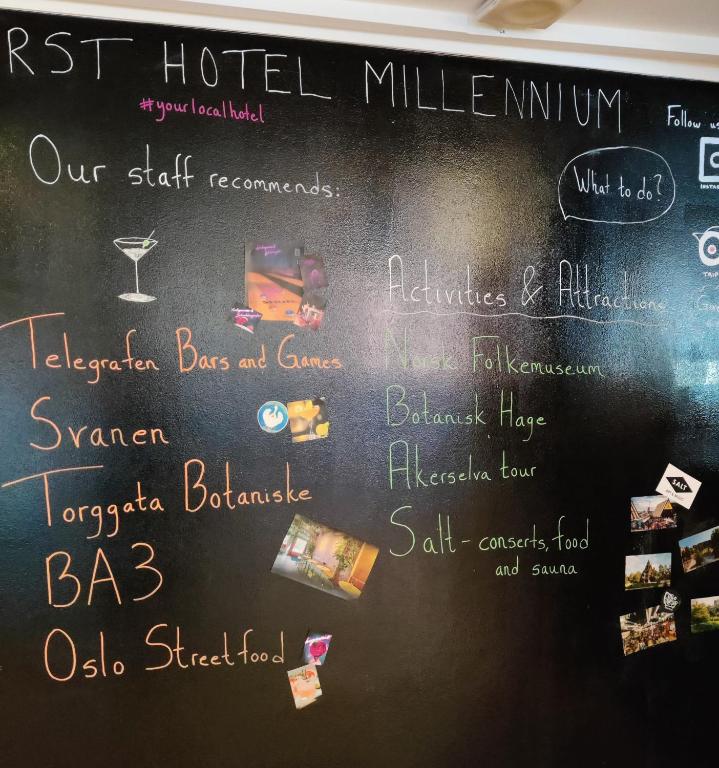 RST HOTEL MILLENNIUM
#yourlocalhotel
Follow us
Our staff recommends:
What to do?
Telegrafen Bars and Games
Svanen
Torggata Botaniske
BA3
Oslo Streetfood
Activities & Attractions
Norsk Folkemuseum
Botanisk Hage
Akerselva tour
Salt - conserts, food
and sauna
SALT